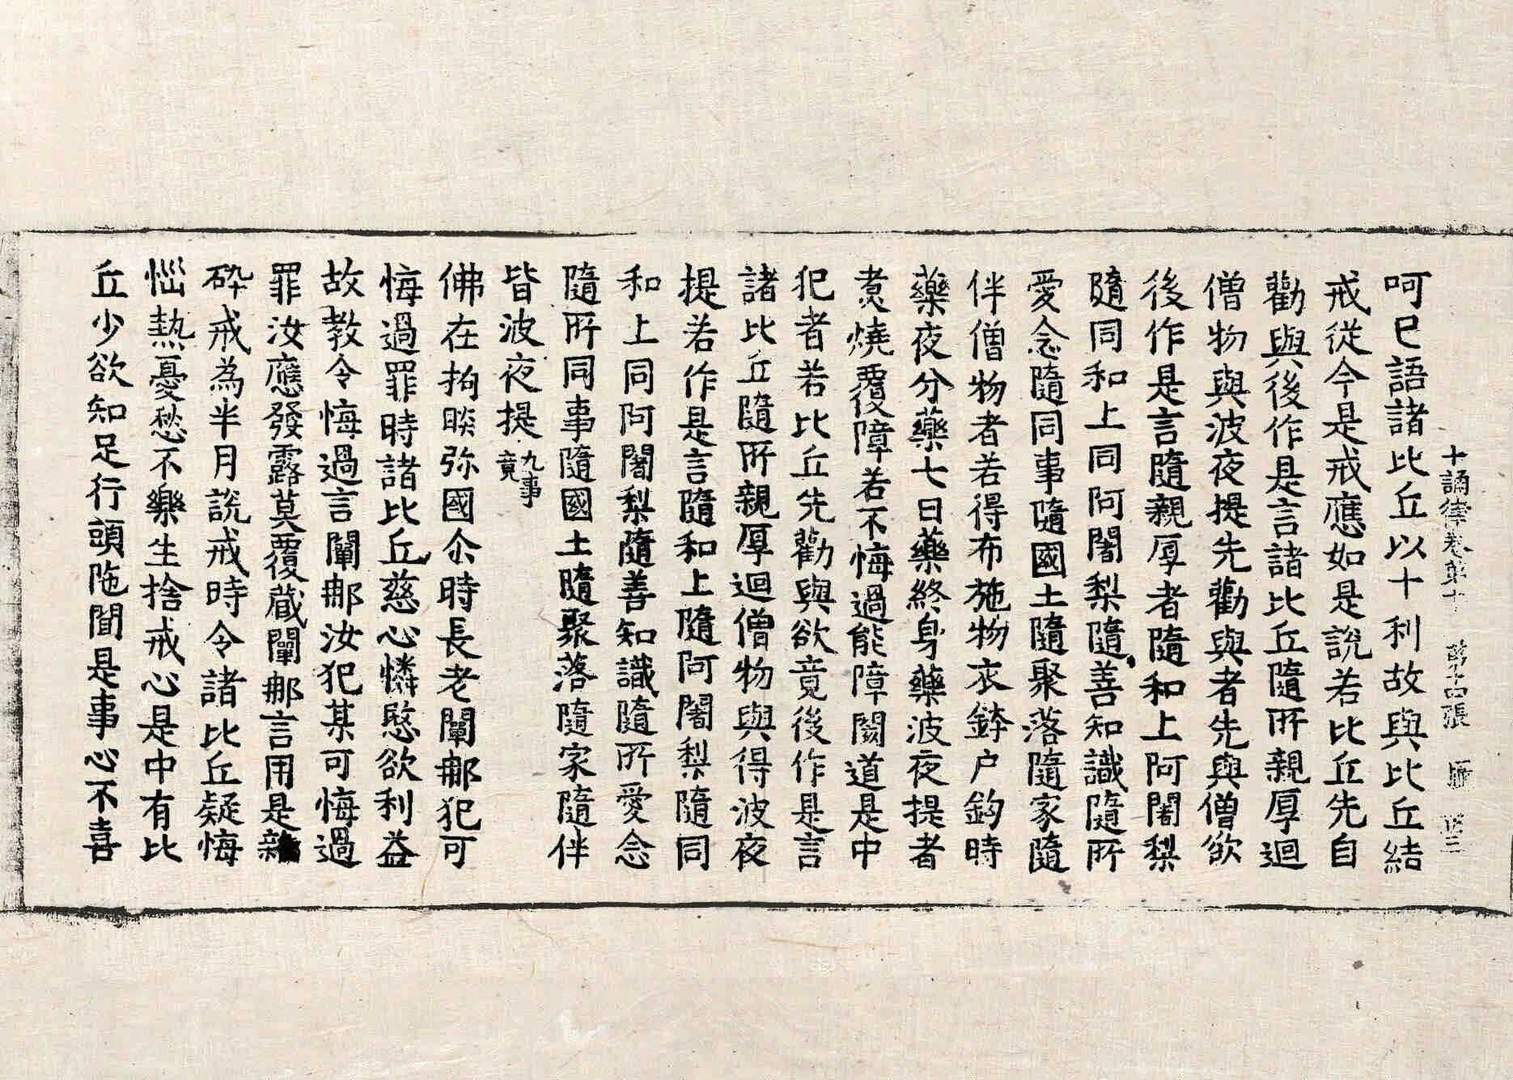 十誦律卷第十 第十四張
呵已語諸比丘以十利故與比丘結
戒從今是戒應如是說若比丘先自
勸與後作是言諸比丘隨所親厚迴
僧物與波夜提先勸與者先與僧欲
後作是言隨親厚者隨和上阿闍梨
隨同和上同阿闍梨隨善知識隨所
愛念隨同事隨國土隨聚落隨家隨
伴僧物者若得布施物衣鉢户鈎時
藥夜分藥七日藥終身藥波夜提者
煑燒覆障若不悔過能障閡道是中
犯者若比丘先勸與欲竟後作是言
諸比丘隨所親厚迴僧物與得波夜
提若作是言隨和上隨阿闍梨隨同
和上同阿闍梨隨善知識隨所愛念
隨所同事隨國土隨聚落隨家隨伴
皆波夜提九事竟
佛在拘睒弥國尒時長老闡那犯可
悔過罪時諸比丘慈心憐愍欲利益
故教令悔過言闡那汝犯某可悔過
罪汝應發露莫覆藏闡那言用是雜
碎戒為半月說戒時令諸比丘疑悔
惱熱憂愁不樂生捨戒心是中有比
丘少欲知足行頭陁聞是事心不喜